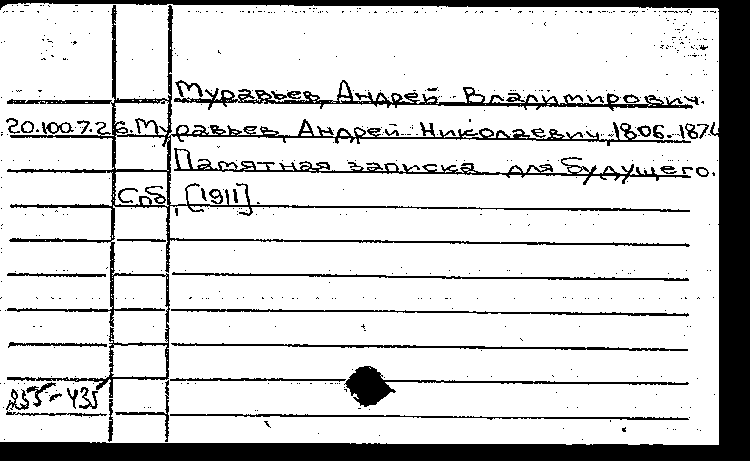 Муравьев, Андрей Владимирович.
20.100.7.26. Муравьев, Андрей Николаевич, 1806-1874
Памятная записка для будущего.
Спб, [1911].
255-435